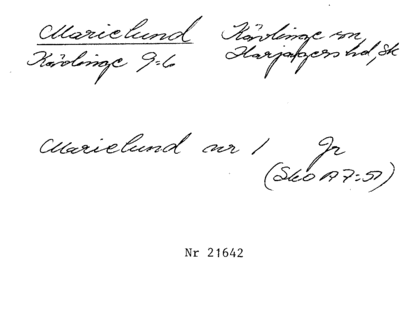 Marielund Kävlinge sn,
Kävlinge 9:6 Harjagers hd, Sk
Marielund nr 1 Jr
(Sko A7:51)
Nr 21642